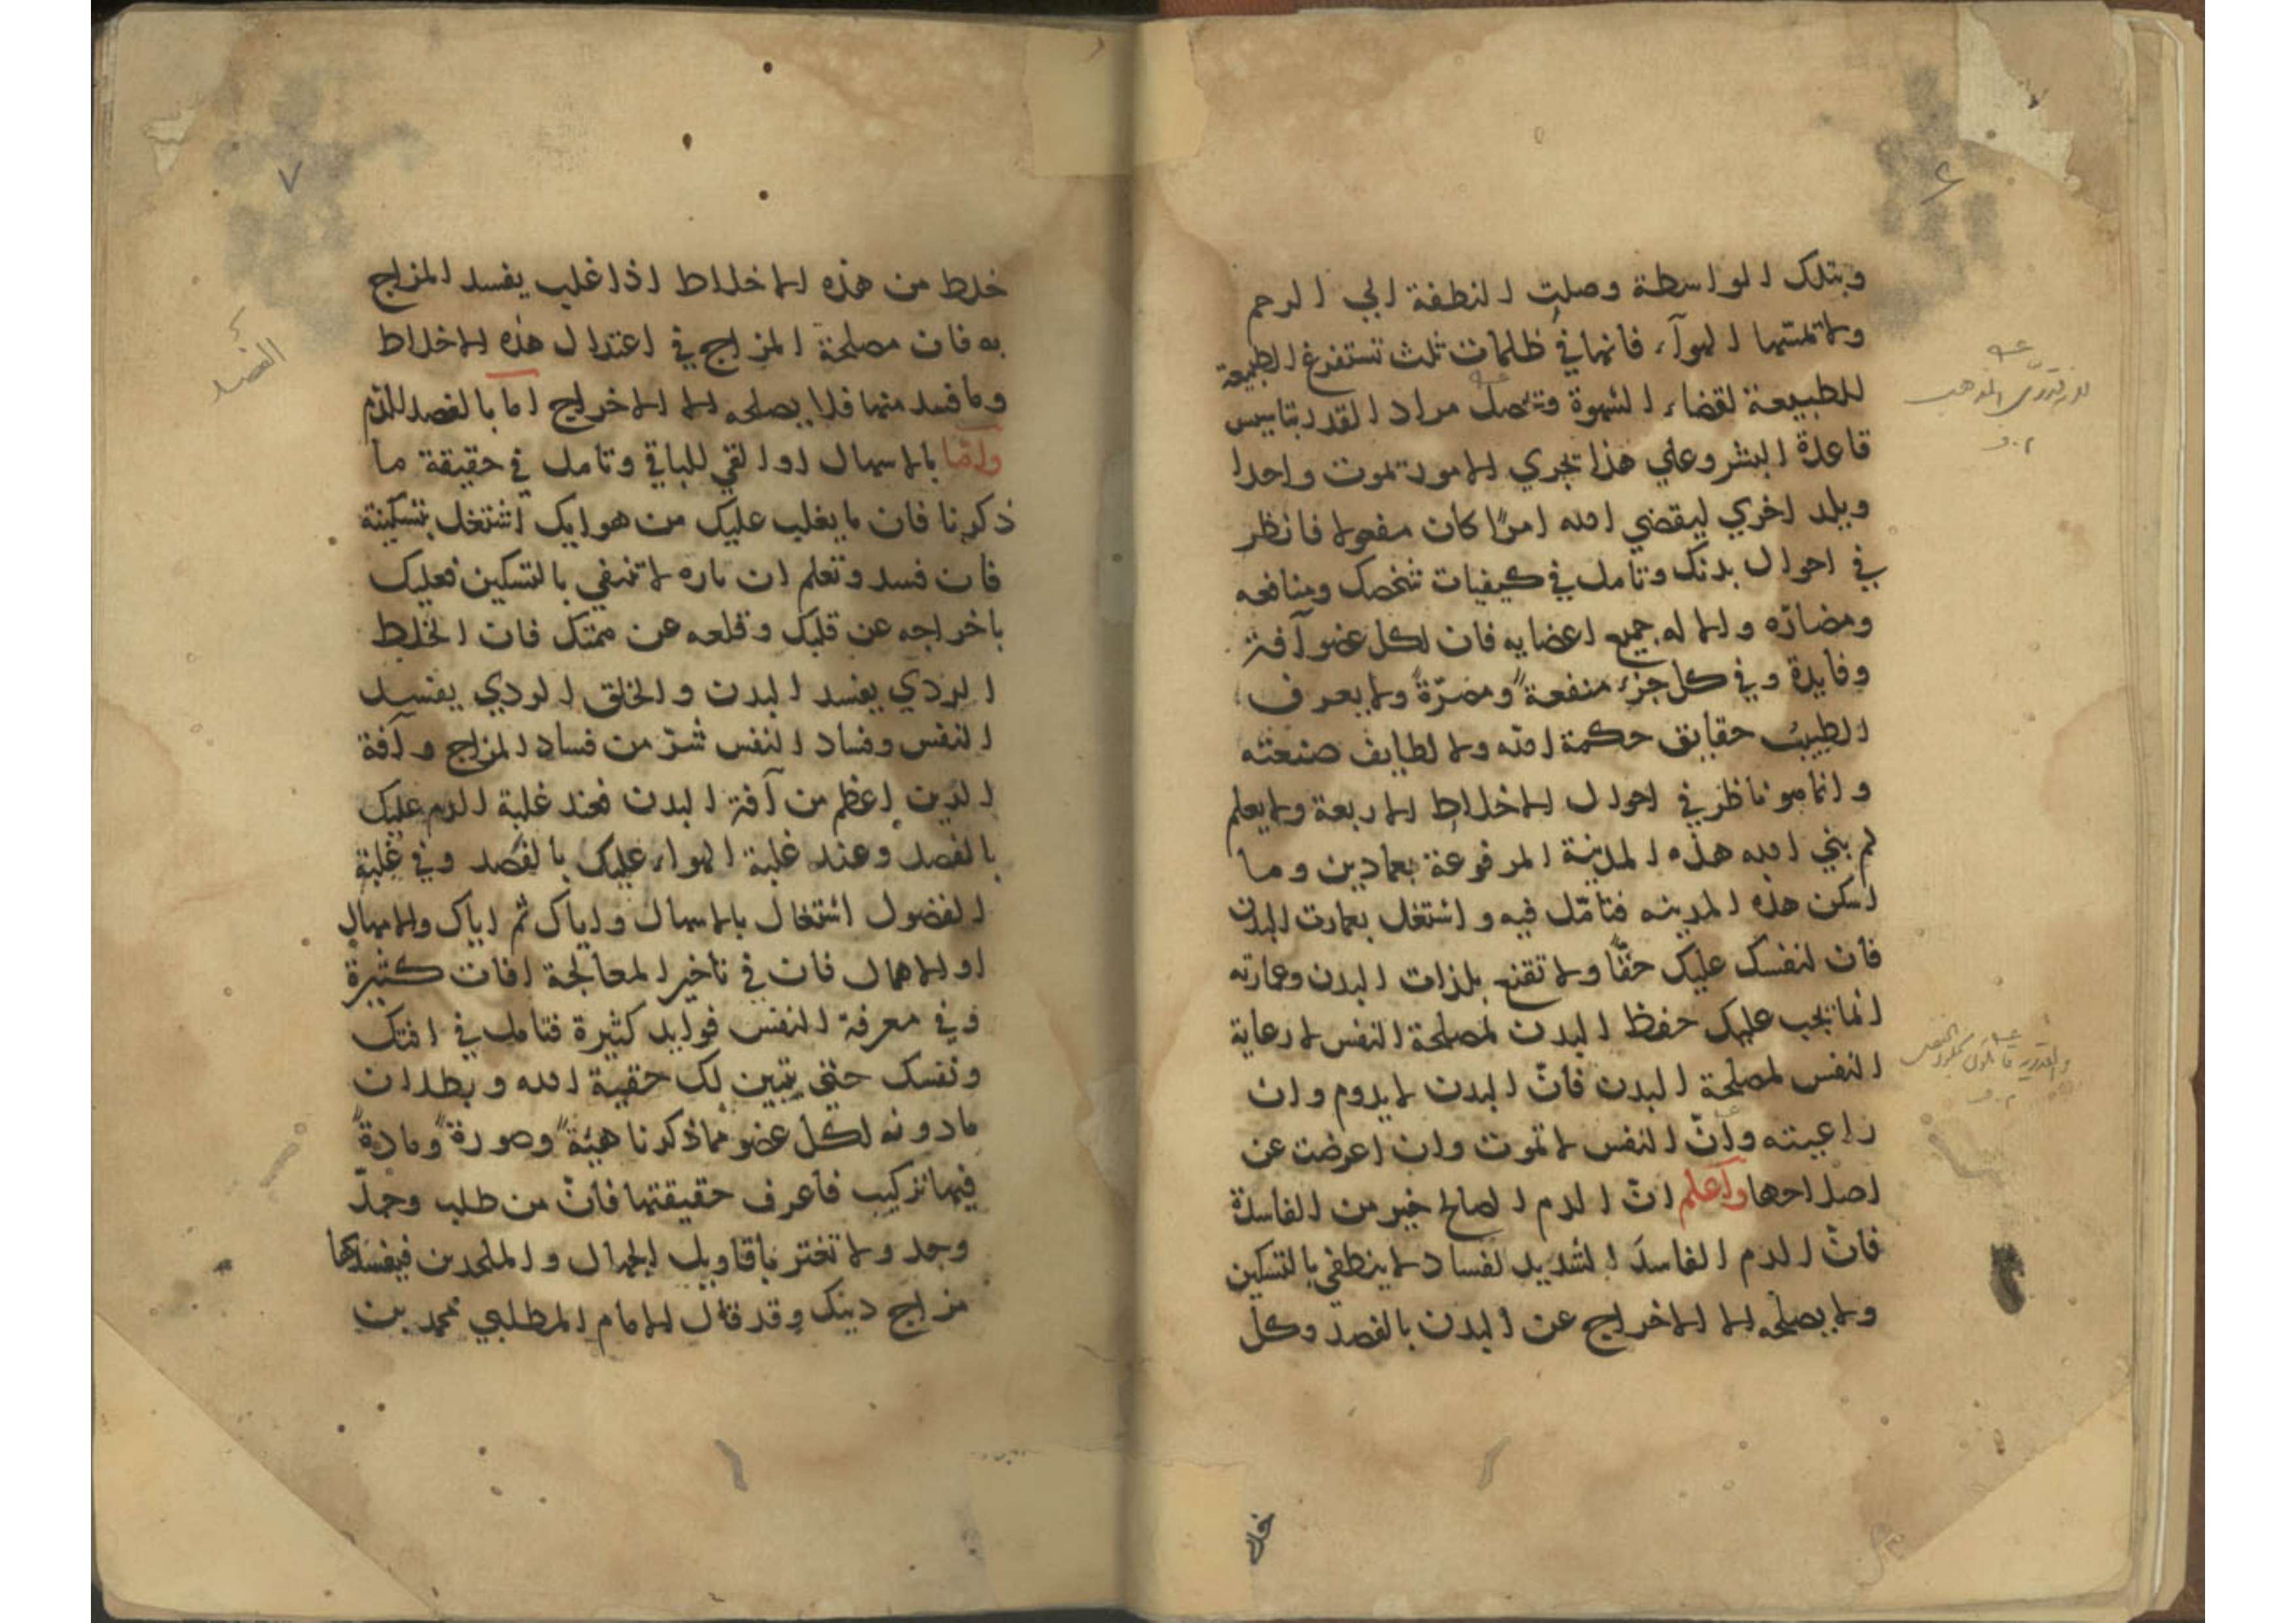 وبتلك الواسطة وصلت النطفة الي الرحم
ولا تمسّها الهوآء فانها في ظلمات ثلث تستفرغ الطبيعة
للطبيعة لقضاء الشهوة وتحصل مراد القدر بتاسيس
قاعدة البشر وعلي هذا تجري الامور تموت واحدا
ويلد اخري ليقضي الله امرًا كان مفعولا فانظر
في احوال بدنك وتامل في كيفيات شخصك ومنافعه
ومضارّه والاله جميع اعضايه فان لكل عضو آفة
وفايدة وفي كل جزء منفعةً ومضرّةً ولا يعرف
الطبيب حقايق حكمة الله ولا لطايف صنعته
وانما هو ناظر في احوال الاخلاط الاربعة ولا يعلم
لم بني الله هذه المدينة المرفوعة بعمادين وما
اسكن هذه المدينه فتامّل فيه واشتغل بعمارت البدن
فان لنفسك عليك حقّا ولا تقنع بلذات البدن وعمارته
انما يجب عليك حفظ البدن لمصلحة النفس لا رعاية
النفس لمصلحة البدن فانّ البدن لا يدوم وان
راعيته وانّ النفس لا تموت وان اعرضت عن
اصلاحها واعلم انّ الدم الصالح خير من الفاسدة
فانّ الدم الفاسد الشديد لفساد لا ينطفي بالتسكين
ولا يصلحه الا الاخراج عن البدن بالفصد وكل
خلط
٧
خلط من هذه الاخلاط اذا غلب يفسد المزاج
به فان مصلحة المزاج في اعتدال هذه الاخلاط
وما فسد منها فلا يصلحه الا الاخراج اما بالفصد للدم
وامّا بالاسهال او القي للباقي وتامل في حقيقة ما
ذكرنا فان ما يغلب عليك من هوايك اشتغل بتسكينة
فان فسد وتعلم ان ناره لا تنفي بالتسكين فعليك
باخراجه عن قلبك وقلعه عن همتك فان الخلط
الردي يفسد البدن والخلق الردي يفسد
النفس وفساد النفس شرّ من فساد المزاج وآفة
الدين اعظم من آفة البدن فعند غلبة الدم عليك
بالفصد وعند غلبة الهواء عليك بالقصد وفي غلبة
الفضول اشتغال بالاسهال واياك ثم اياك والامهال
او الاهمال فان في تاخير المعالجة افات كثيرة
وفي معرفة النفس فوايد كثيرة فتامل في افتك
ونفسك حتي يتبين لك حقية الله وبطلان
مادونه لكل عضو مما ذكرنا هيئةً وصورةً ومادةً
فيها تركيب فاعرف حقيقتها فانّ من طلب وجدّ
وجد ولا تغتر باقاويل الجهال والملحدين فيفسدها
مزاج دينك وقد قال الامام المطلبي محمد بن
الفصد